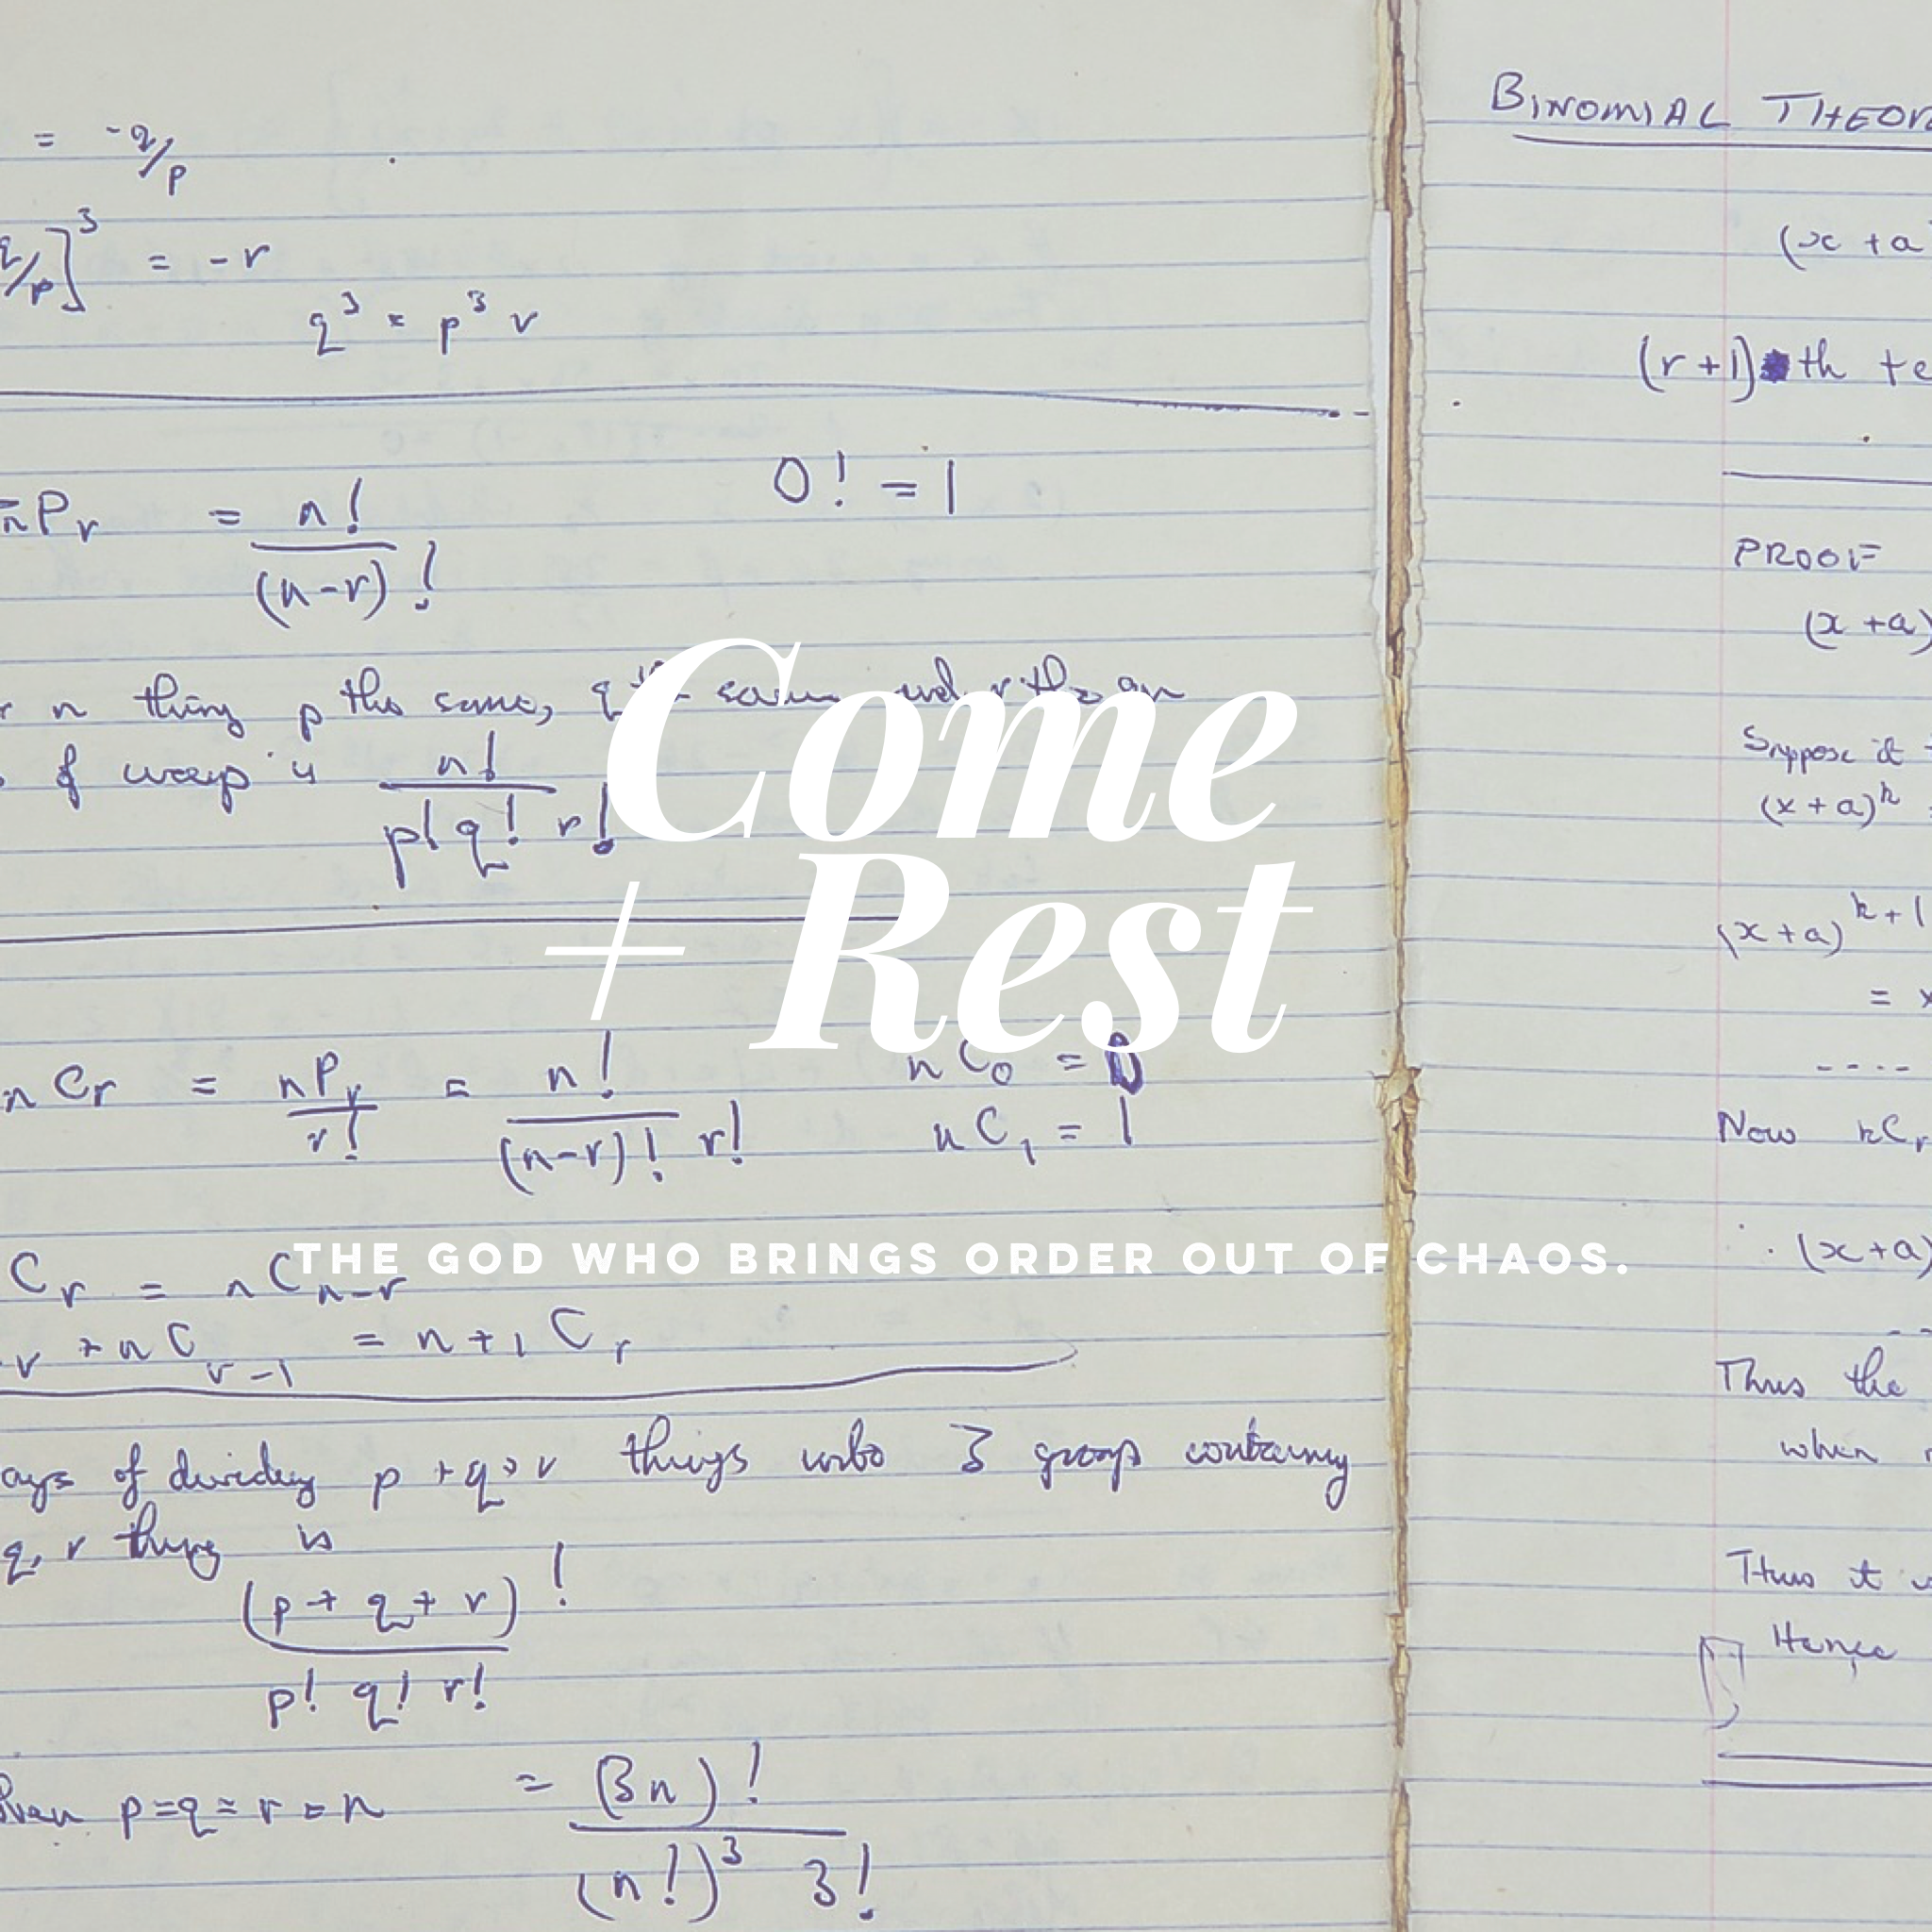 = -q/p
q/p]³ = -r
q³ = p³ r
nPr = n! / (n-r)!
0! = 1
n thing p the same, q
of ways is n! / p! q! r!
Come
+ Rest
nCr = nPr / r! = n! / (n-r)! r!
nC₀ = 0
nC₁ = 1
THE GOD WHO BRINGS ORDER OUT OF CHAOS.
Cr = nCn-r
r + nCr-1 = n+1Cr
of dividing p+q+r things into 3 groups containing
q, r thing is
(p + q + r)! / p! q! r!
when p=q=r=n = (3n)! / (n!)³ 3!
BINOMIAL THEOR
(x + a
(r+1)th te
PROOF
(x + a)
Suppose it
(x + a)ᵏ
(x + a)ᵏ⁺¹
= x
----
Now kCr
∴ (x + a)
Thus the
when
Thus it
Hence